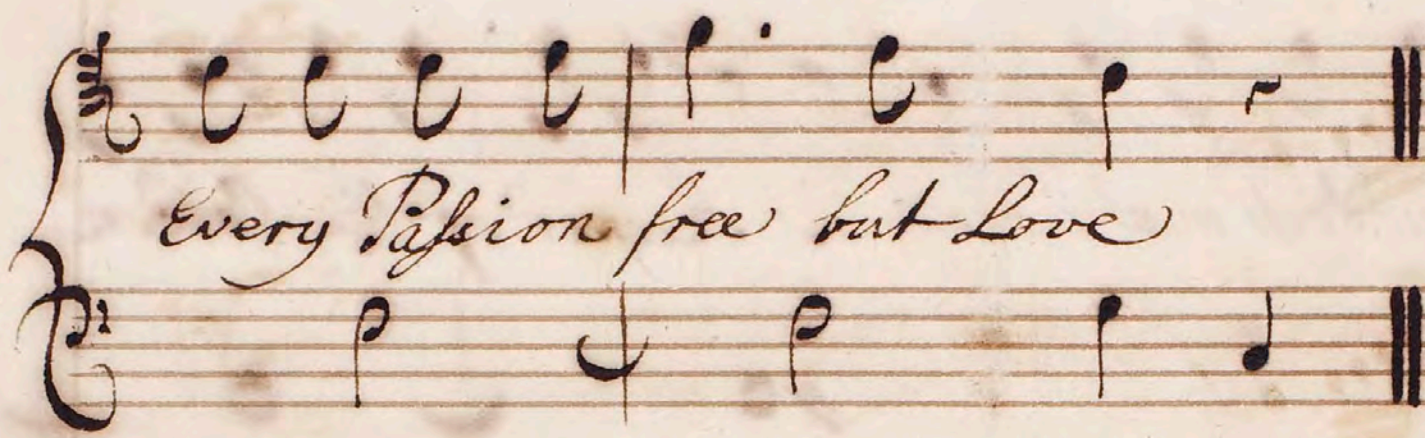 Every Paſsion free but Love